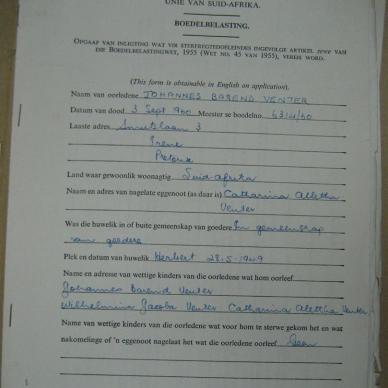 UNIE VAN SUID-AFRIKA.
BOEDELBELASTING.
OPGAAF VAN INLIGTING WAT VIR STERFREGTEDOELEINDES INGEVOLGE ARTIKEL sewe VAN
DIE BOEDELBELASTINGWET, 1955 (WET NO. 45 VAN 1955), VEREIS WORD.
(This form is obtainable in English on application).
Naam van oorledene JOHANNES BAREND VENTER
Datum van dood 3 Sept 1960 Meester se boedelno.
Laaste adres Smutslaan 3
Irene
Pretoria
Land waar gewoonlik woonagtig Suid Afrika
Naam en adres van nagelate eggenoot (as daar is) Catharina Aletta
Venter
Was die huwelik in of buite gemeenskap van goedere In gemeenskap
van goedere
Plek en datum van huwelik Herbert 28-5-1949
Name en adresse van wettige kinders van die oorledene wat hom oorleef
Johannes Barend Venter
Wilhelmina Jacoba Venter Catharina Alettha Venter
Name van wettige kinders van die oorledene wat voor hom te sterwe gekom het en wat
nakomelinge of 'n eggenoot nagelaat het wat die oorledene oorleef Geen